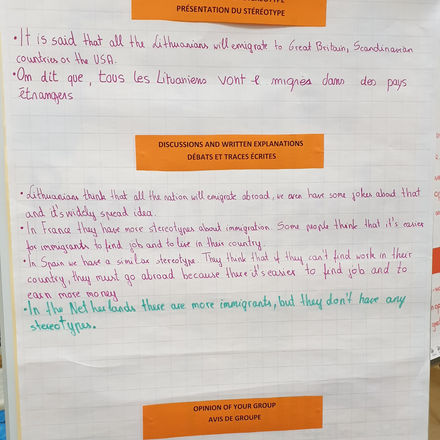 PRÉSENTATION DU STÉRÉOTYPE
• It is said that all the Lithuanians will emigrate to Great Britain, Scandinavian
countries or the USA.
• On dit que, tous les Lituaniens vont émigres dans des pays
étrangers
DISCUSSIONS AND WRITTEN EXPLANATIONS
DÉBATS ET TRACES ÉCRITES
• Lithuanians think that all the nation will emigrate abroad, we even have some jokes about that
and it's widely spread idea.
• In France they have more stereotypes about immigration. Some people think that it's easier
for immigrants to find job and to live in their country.
• In Spain we have a similar stereotype. They think that if they can't find work in their
country, they must go abroad because there it's easier to find job and to
earn more money
• In the Netherlands there are more immigrants, but they don't have any
stereotypes.
OPINION OF YOUR GROUP
AVIS DE GROUPE